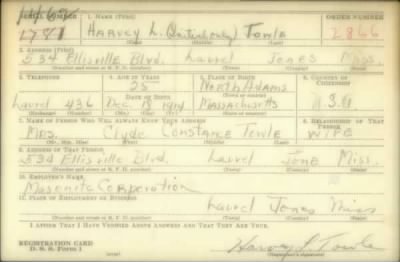 SERIAL NUMBER 1. NAME (Print) ORDER NUMBER
1781 HARVEY L. (Initial only) Towle 2866
2. ADDRESS (Print)
534 Ellisville Blvd. Laurel Jones Miss.
3. TELEPHONE 4. AGE IN YEARS 5. PLACE OF BIRTH 6. COUNTRY OF CITIZENSHIP
25 North Adams
Laurel 436 Dec. 18 1914 Massachusetts U.S.A.
7. NAME OF PERSON WHO WILL ALWAYS KNOW YOUR ADDRESS 8. RELATIONSHIP OF THAT PERSON
Mrs. Clyde Constance Towle WIFE
(Mr., Mrs., Miss) (First) (Middle) (Last)
9. ADDRESS OF THAT PERSON
534 Ellisville Blvd. Laurel Jone Miss.
(Number and street or R. F. D. number) (Town) (County) (State)
10. EMPLOYER'S NAME
Masonite Corporation
11. PLACE OF EMPLOYMENT OR BUSINESS
Laurel Jones Miss
(Number and street or R. F. D. number) (Town) (County) (State)
I AFFIRM THAT I HAVE VERIFIED ABOVE ANSWERS AND THAT THEY ARE TRUE.
REGISTRATION CARD
D. S. S. Form 1 Harvey L. Towle
(Registrant's signature)